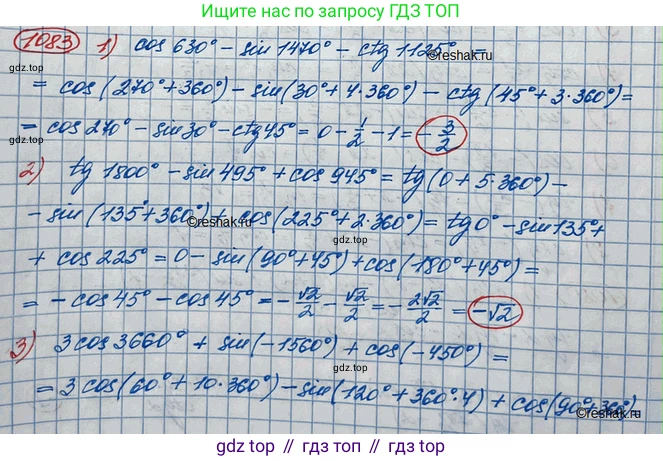 Ищите нас по запросу ГДЗ ТОП
1083 1) cos 630° - sin 1470° - ctg 1125° =
gdz.top
©reshak.ru
= cos (270° + 360°) - sin(30° + 4·360°) - ctg (45° + 3·360°) =
gdz.top
= cos 270° - sin 30° - ctg 45° = 0 - 1/2 - 1 = -3/2
2) tg 1800° - sin 495° + cos 945° = tg(0 + 5·360°) -
gdz.top
- sin (135° + 360°) + cos(225° + 2·360°) = tg 0° - sin 135° +
©reshak.ru
gdz.top
+ cos 225° = 0 - sin (90° + 45°) + cos(180° + 45°) =
= - cos 45° - cos 45° = - √2/2 - √2/2 = - 2√2/2 = -√2
gdz.top
3) 3 cos 3660° + sin (-1560°) + cos(-450°) =
gdz.top
= 3 cos(60° + 10·360°) - sin (120° + 360°·4) + cos(90° + 360°) =
©reshak.ru
gdz top // гдз топ // gdz.top